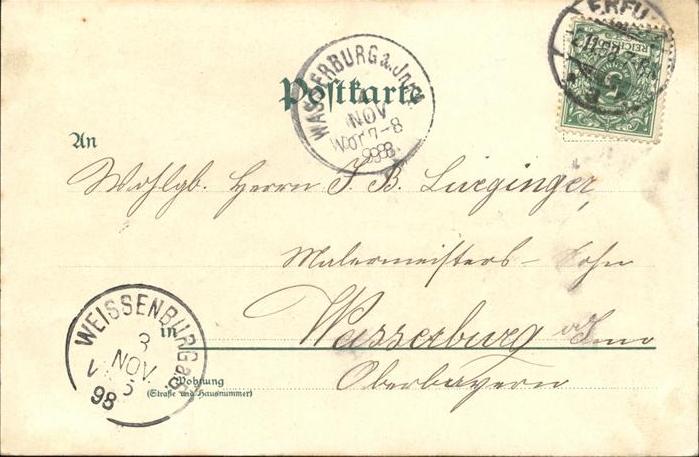 ERFU
REICHSPOST
5
WASSERBURG a. Inn.
4
NOV
Vor 7-8
1898.
Postkarte
An
Wohlgb. Herrn J. B. Lueginger,
Malermeisters – Sohn
in Wasserburg a/Inn
Oberbayern
Wohnung
(Straße und Hausnummer)
WEISSENBURG a.S.
3
NOV.
V 5
98